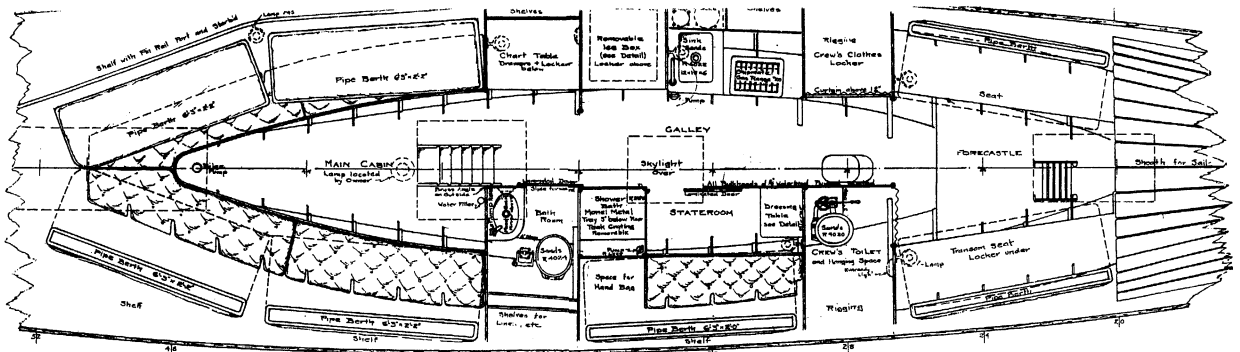 Shelf with Pin Rail Port and Starb'd
Lamp
Pipe Berth 6'3"×2'2"
Pipe Berth 6'3"×2'2"
Shelves
Chart Table
Drawers & Locker
below
Removable
Ice Box
(see Detail)
Locker above
Sink
Sands
Pump
Shelves
Rigging
Crew's Clothes
Locker
Curtain above
Pipe Berth
Seat
GALLEY
MAIN CABIN
Lamp located
by Owner
Skylight
Over
FORECASTLE
Sheath for Sail
Water Filler
Bath
Room
Sands
Shower
Bath
Monel Metal
Tray 5" below floor
Teak Grating
Removable
Pump
STATEROOM
Louvered Door
Dressing
Table
see Detail
Sands
CREW'S TOILET
and Hanging Space
Lamp
Transom Seat
Locker under
Pipe Berth
Space for
Hand Bag
Pipe Berth 6'3"×2'2"
Shelf
Pipe Berth 6'3"×2'2"
Shelf
Shelves for
Linen, etc.
Pipe Berth 6'3"×2'0"
Shelf
Rigging
52
48
28
24
20